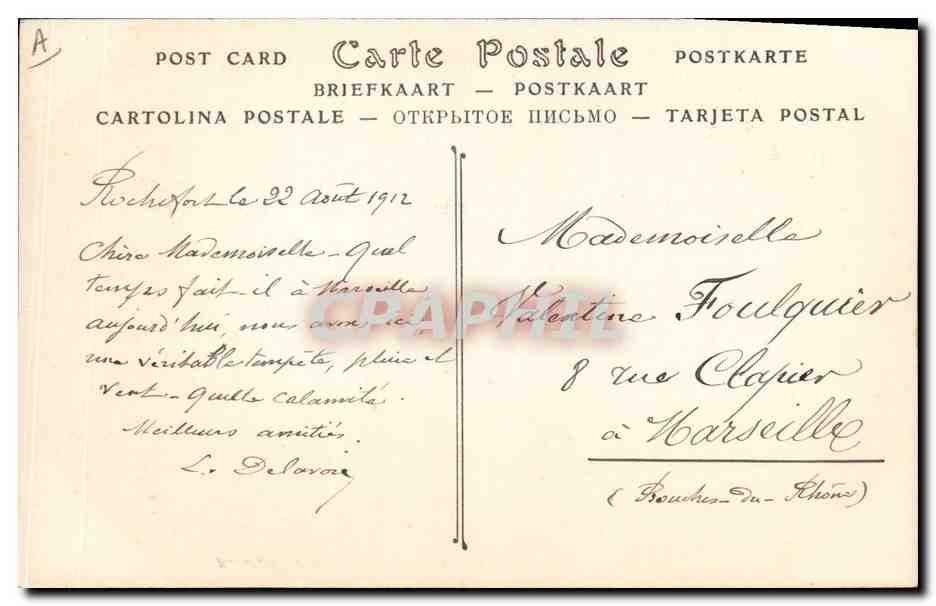 A
POST CARD Carte Postale POSTKARTE
BRIEFKAART — POSTKAART
CARTOLINA POSTALE — ОТКРЫТОЕ ПИСЬМО — TARJETA POSTAL
Rochefort le 22 Août 1912
Chère Mademoiselle - Quel
temps fait-il à Marseille
aujourd'hui, nous avons ici
une véritable tempête, pluie et
vent - quelle calamité.
Meilleurs amitiés.
L. Delavoie
Mademoiselle
Valentine Foulquier
8 rue Clapier
à Marseille
(Bouches-du-Rhône)
CPAPHIL